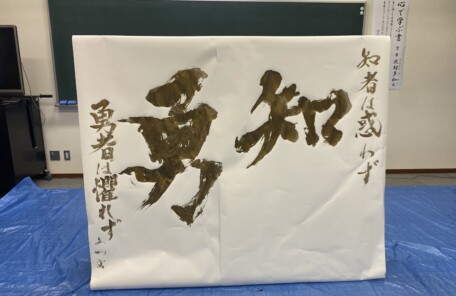 知者は惑わず
知
勇
勇者は懼れず
心で学ぶ書